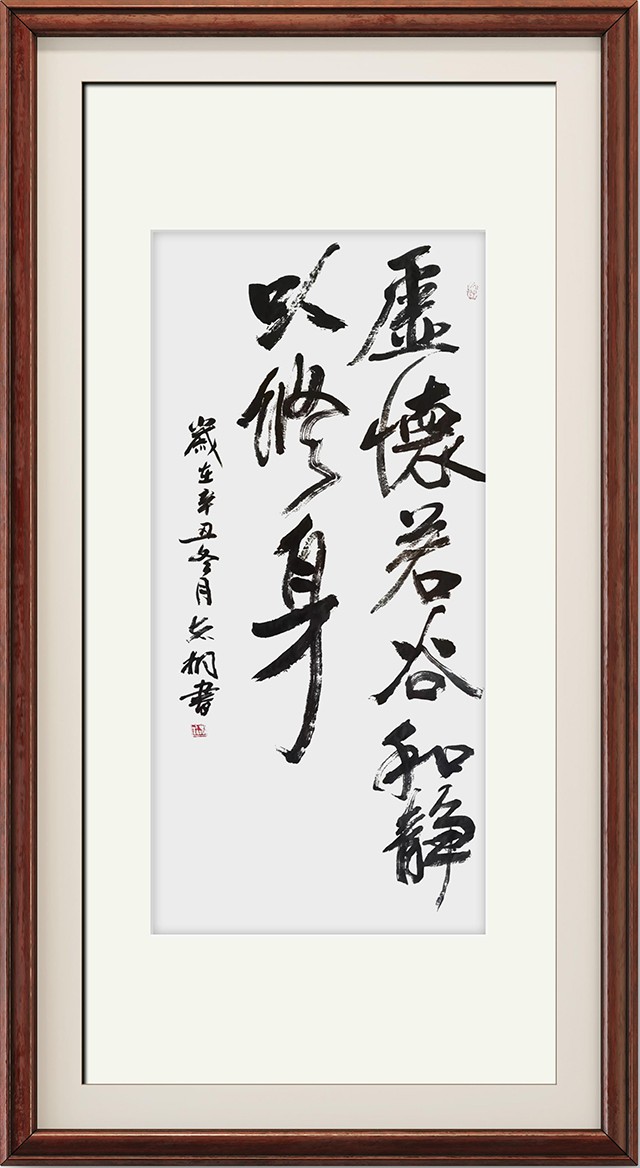 虚懷若谷和静
以修身
歲在辛丑冬月桐書